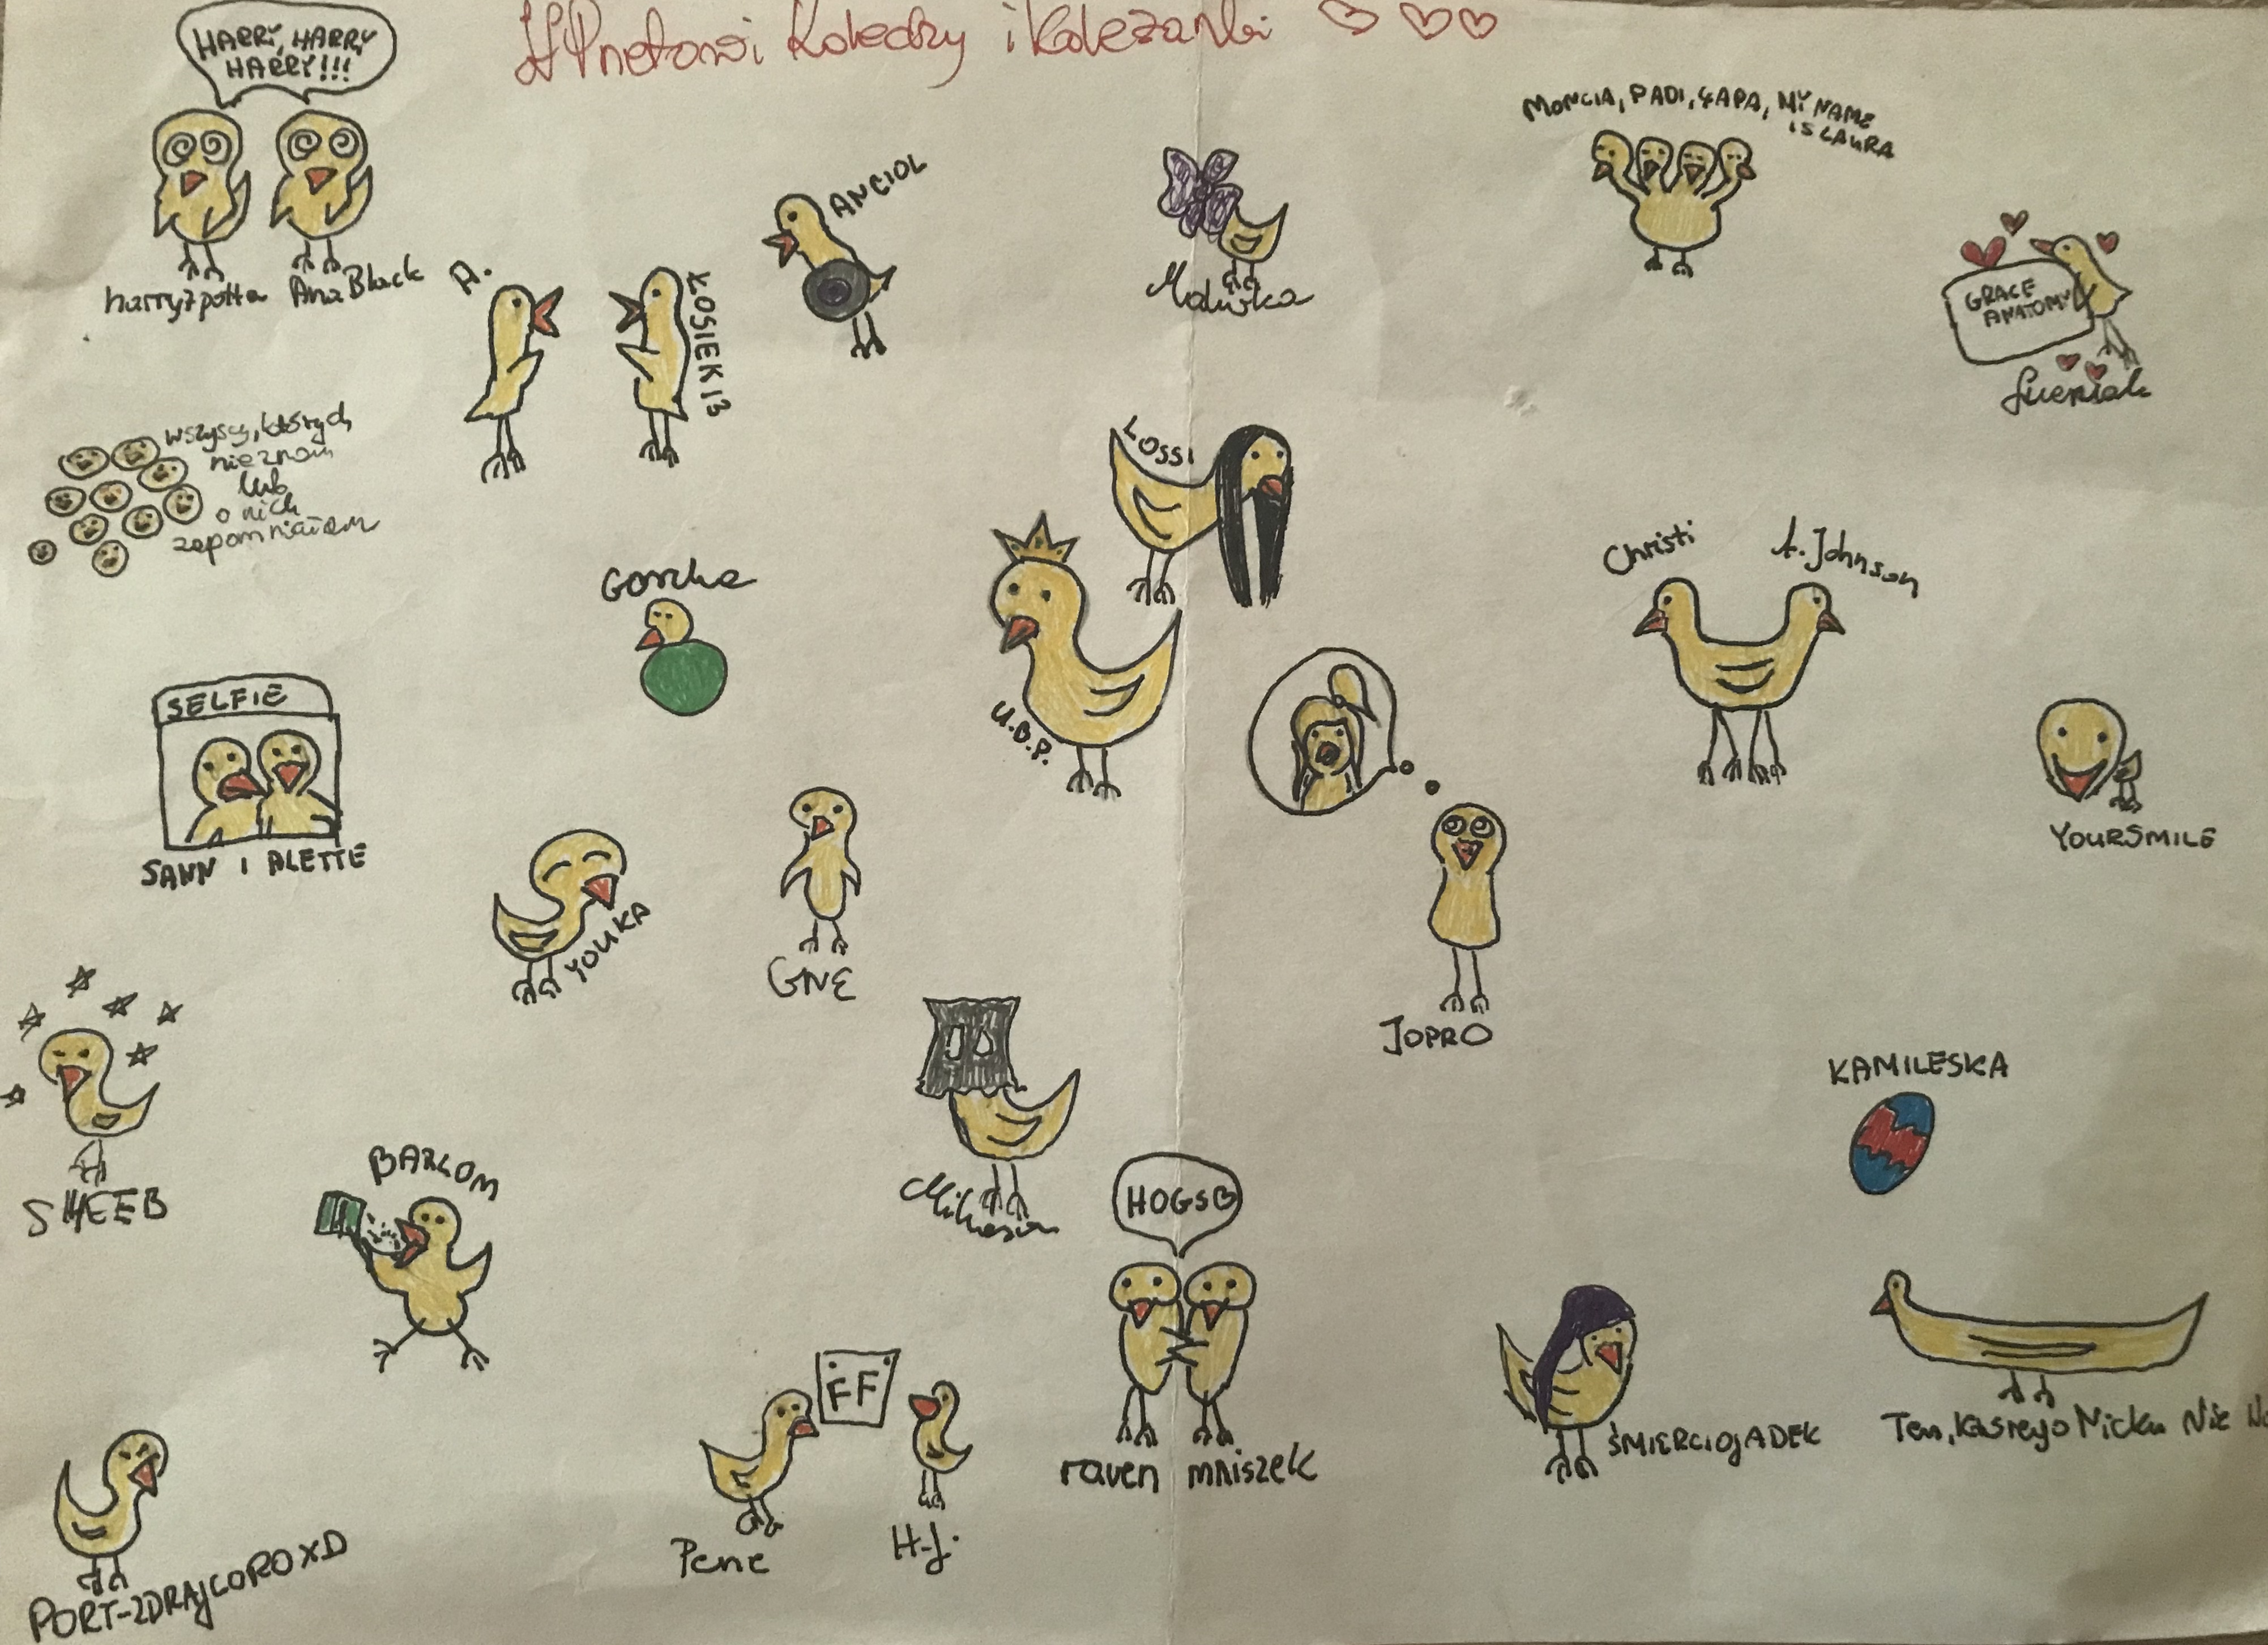 HPnetowi Koledzy i Koleżanki
HARRY, HARRY
HARRY!!!
harryzpotta
AnaBlack
A.
ŁOSIEK13
ANCIOL
Malwka
MONCIA, PADI, ŁAPA, MY NAME
IS LAURA
GRACE
ANATOMY
wszyscy, których
nie znam
lub
o nich
zapomniałam
LOSSI
Goszka
U.B.P.
Christi
A. Johnson
SELFIE
SANN I ALETTE
YOUKA
GNE
YOURSMILE
JOPRO
KAMILESKA
SHEEB
BARLOM
HOGSB
raven mniszek
FF
Pene
H-J.
ŚMIERCIOJADEK
Ten, Którego Nicku Nie
PORT-ZDRAJCOROXD